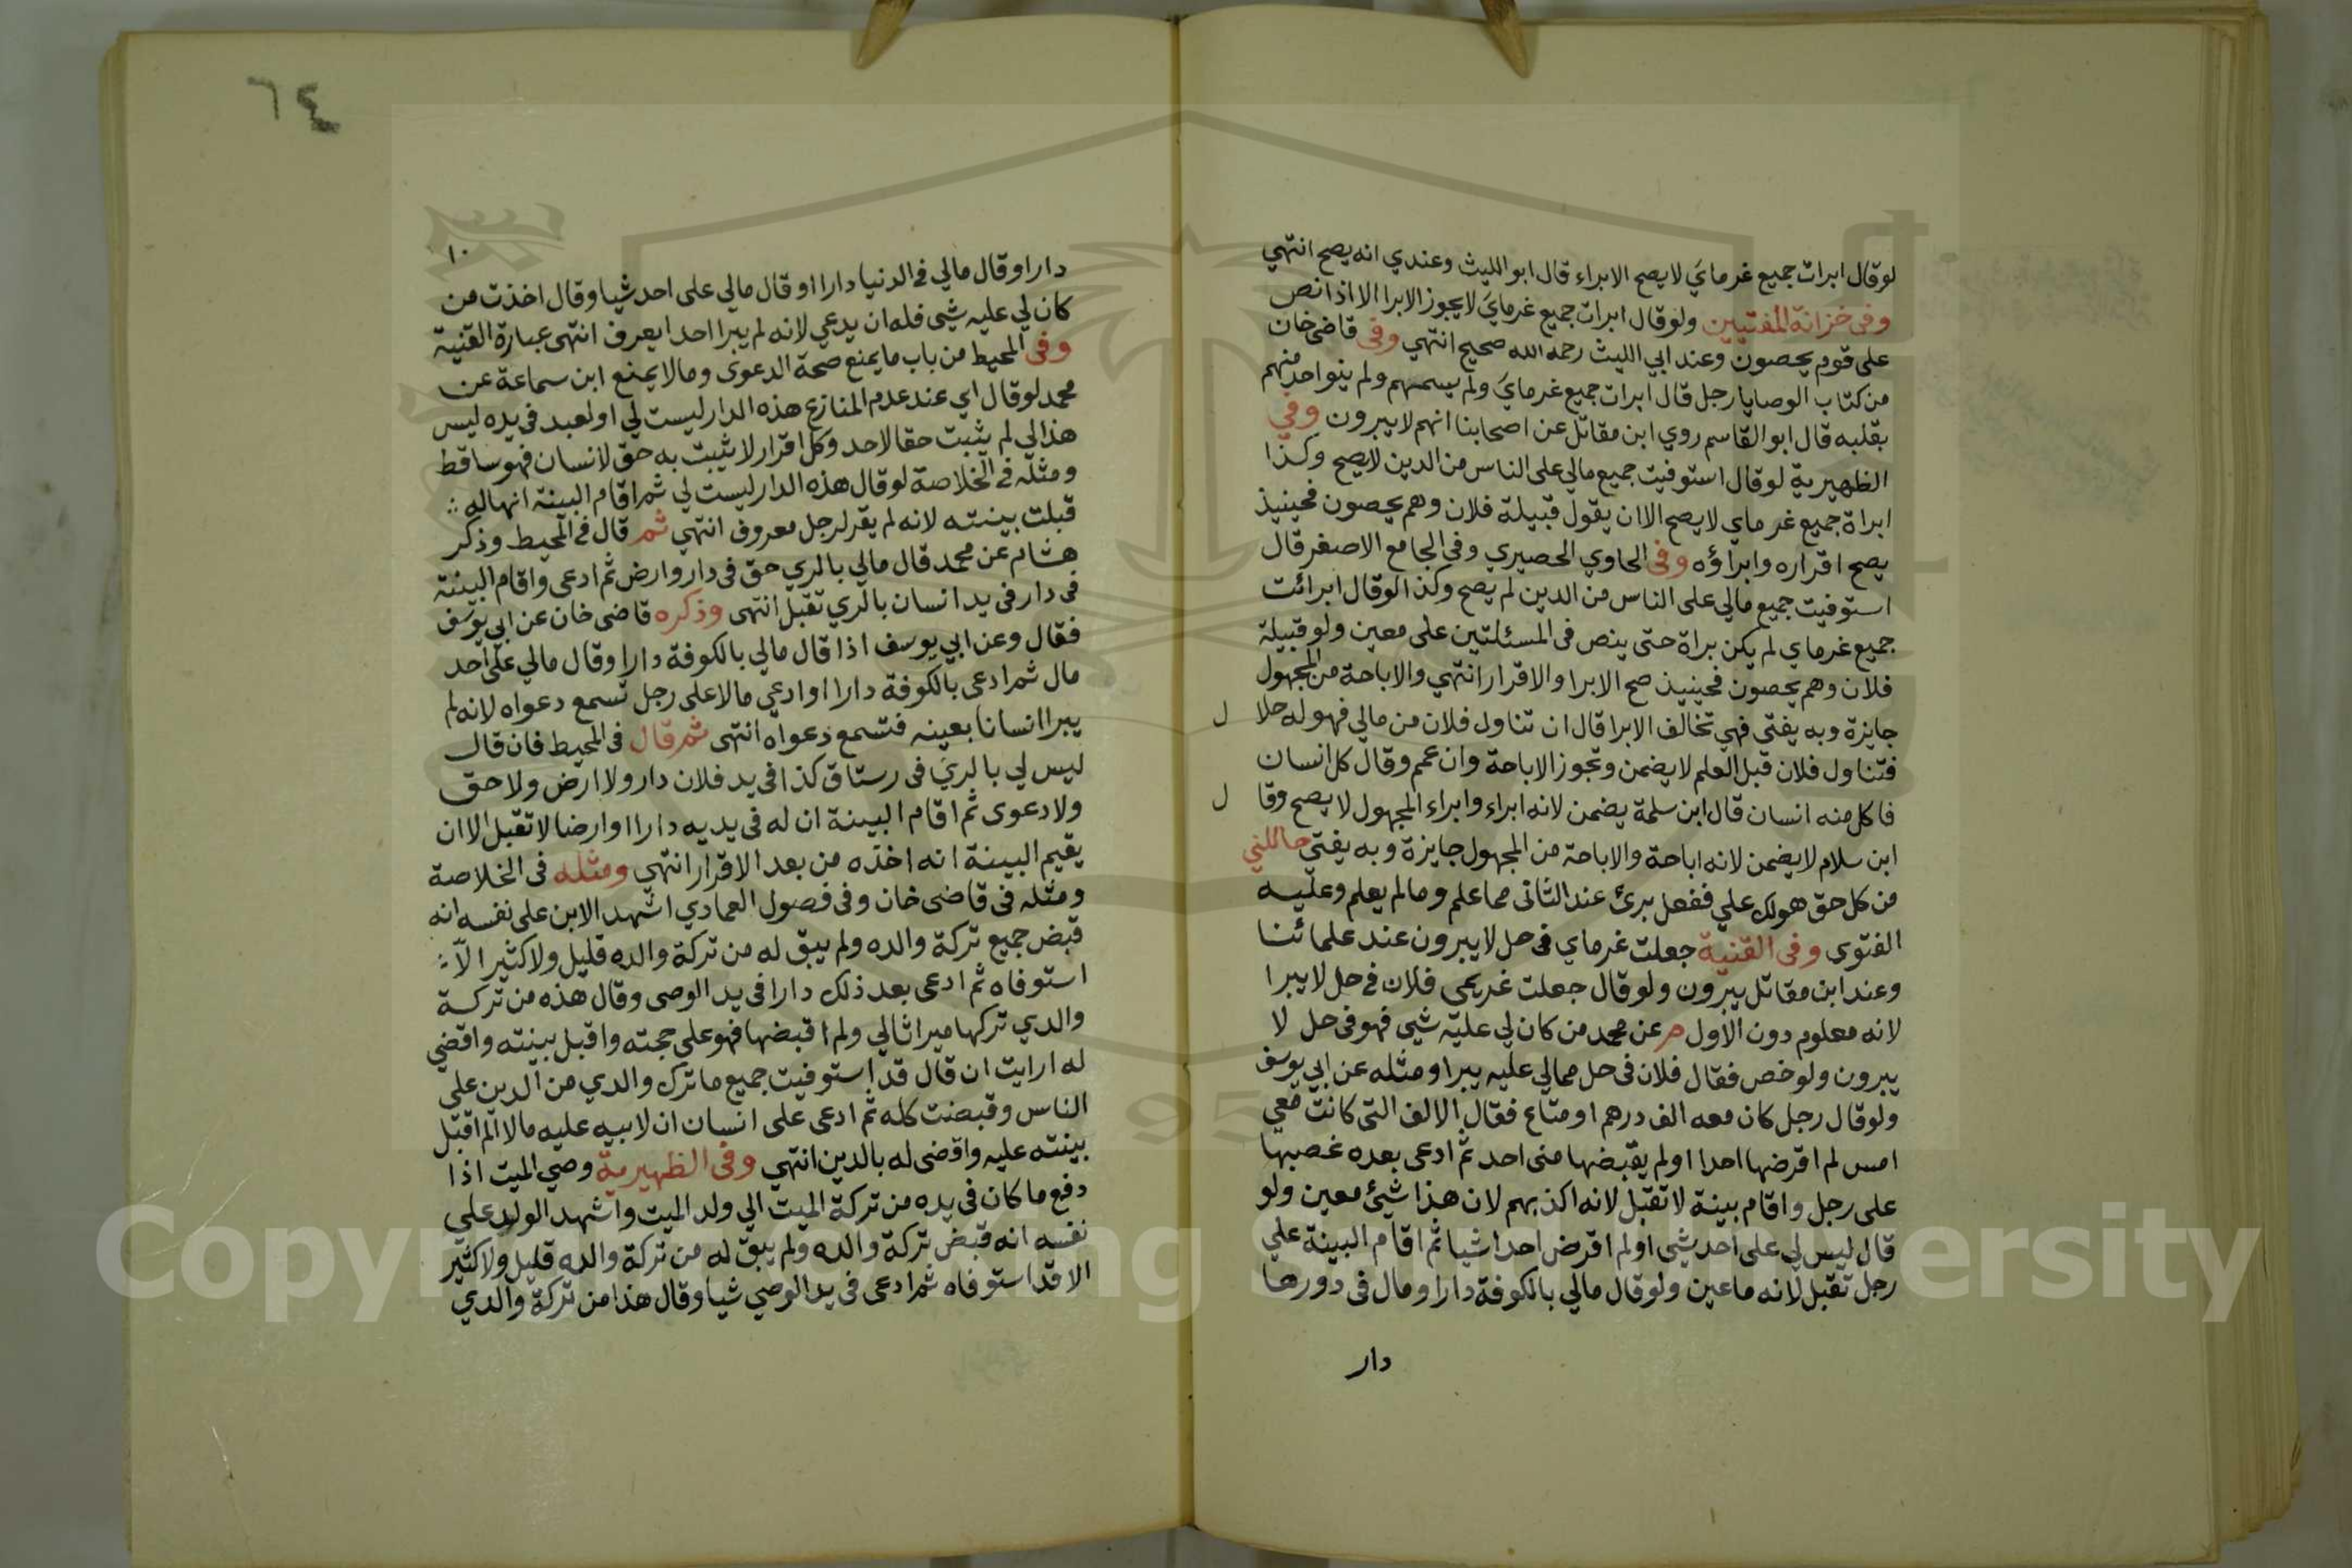 لوقال ابرات جميع غرماي لا يصح الابراء قال ابو الليث وعندي انه يصح انتهي
وفى خزانة المفتيين ولو قال ابرات جميع غرماي لا يجوز الابرا الا اذا نص
على قوم يحصون وعند ابي الليث رحمه الله صحيح انتهي وفى قاضى خان
من كتاب الوصايا رجل قال ابرات جميع غرماي ولم يسمهم ولم ينو احد منهم
بقلبه قال ابو القاسم روي ابن مقاتل عن اصحابنا انهم لا يبرون وفي
الظهيرية لو قال استوفيت جميع مالي على الناس من الدين لايصح وكذا
ابراة جميع غرماي لا يصح الا ان يقول قبيلة فلان وهم يحصون فحينيذ
يصح اقراره وابراؤه وفى الحاوي الحصيري وفى الجامع الاصغر قال
استوفيت جميع مالي على الناس من الدين لم يصح وكذا لو قال ابرائت
جميع غرماي لم يكن براة حتى ينص فى المسئلتين على معين ولو قبيلة
فلان وهم يحصون فحينيذ صح الابرا والاقرار انتهي والاباحة من المجهول
جايزة وبه يفتى فهي تخالف الابرا قال ان تناول فلان من مالي فهو له حلا ل
فتناول فلان قبل العلم لا يضمن وتجوز الاباحة وان عمم وقال كل انسان
فاكل منه انسان قال ابن سلمة يضمن لانه ابراء وابراء المجهول لا يصح وقا ل
ابن سلام لايضمن لانه اباحة والاباحة من المجهول جايزة وبه يفتي حاللني
من كل حق هولك علي ففعل برئ عند الثانى مما علم وما لم يعلم وعليه
الفتوى وفى القنية جعلت غرماي فى حل لا يبرون عند علمائنا
وعند ابن مقاتل يبرون ولو قال جعلت غريمي فلان فى حل لايبرا
لانه معلوم دون الاول م عن محمد من كان لي عليه شي فهو فى حل لا
يبرون ولو خص فقال فلان فى حل ممالي عليه يبرا ومثله عن ابي يوسف
ولو قال رجل كان معه الف درهم او متاع فقال الالف التى كانت معي
امس لم اقرضها احدا او لم يقبضها منى احد ثم ادعى بعده غصبها
على رجل واقام بينة لا تقبل لانه اكذبهم لان هذا شيئ معين ولو
قال ليس لي على احد شي او لم اقرض احدا شيا ثم اقام البينة علي
رجل تقبل لانه ماعين ولو قال مالي بالكوفة دارا ومال فى دورها
دار
٦٤
١٠
دارا وقال مالي فى الدنيا دارا او قال مالي على احد شيا وقال اخذت من
كان لي عليه شى فله ان يدعي لانه لم يبرا احدا يعرف انتهى عبارة القنية
وفى المحيط من باب ما يمنع صحة الدعوى ومالا يمنع ابن سماعة عن
محمد لو قال اي عند عدم المنازع هذه الدار ليست لي او لعبد فى يده ليس
هذا لي لم يثبت حقا لاحد وكل اقرار لا يثبت به حق لانسان فهو ساقط
ومثله فى الخلاصة لو قال هذه الدار ليست لي ثم اقام البينة انها له
قبلت بينته لانه لم يقر لرجل معروف انتهي ثم قال فى المحيط وذكر
هشام عن محمد قال مالي بالري حق فى دار وارض ثم ادعى واقام البينة
فى دار فى يد انسان بالري تقبل انتهى وذكره قاضى خان عن ابي يوسف
فقال وعن ابي يوسف اذا قال مالي بالكوفة دارا وقال مالي على احد
مال ثم ادعى بالكوفة دارا او ادعي مالا على رجل تسمع دعواه لانه لم
يبرا انسانا بعينه فتسمع دعواه انتهى ثم قال فى المحيط فان قال
ليس لي بالري فى رستاق كذا فى يد فلان دار ولا ارض ولا حق
ولا دعوى ثم اقام البينة ان له فى يديه دارا او ارضا لا تقبل الا ان
يقيم البينة انه اخذه من بعد الاقرار انتهي ومثله فى الخلاصة
ومثله فى قاضى خان وفى فصول العمادي اشهد الابن على نفسه انه
قبض جميع تركة والده ولم يبق له من تركة والده قليل ولا كثير الا
استوفاه ثم ادعى بعد ذلك دارا فى يد الوصى وقال هذه من تركة
والدي تركها ميراثا لي ولم اقبضها فهو علي حجته واقبل بينته واقضي
له ارايت ان قال قد استوفيت جميع ما ترك والدي من الدين على
الناس وقبضت كله ثم ادعى على انسان ان لابيه عليه مالا الم اقبل
بينته عليه واقضى له بالدين انتهي وفى الظهيرية وصي الميت اذا
دفع ما كان فى يده من تركة الميت الي ولد الميت واشهد الولد علي
نفسه انه قبض تركة والده ولم يبق له من تركة والده قليل ولا كثير
الا قد استوفاه ثم ادعى فى يد الوصي شيا وقال هذا من تركة والدي